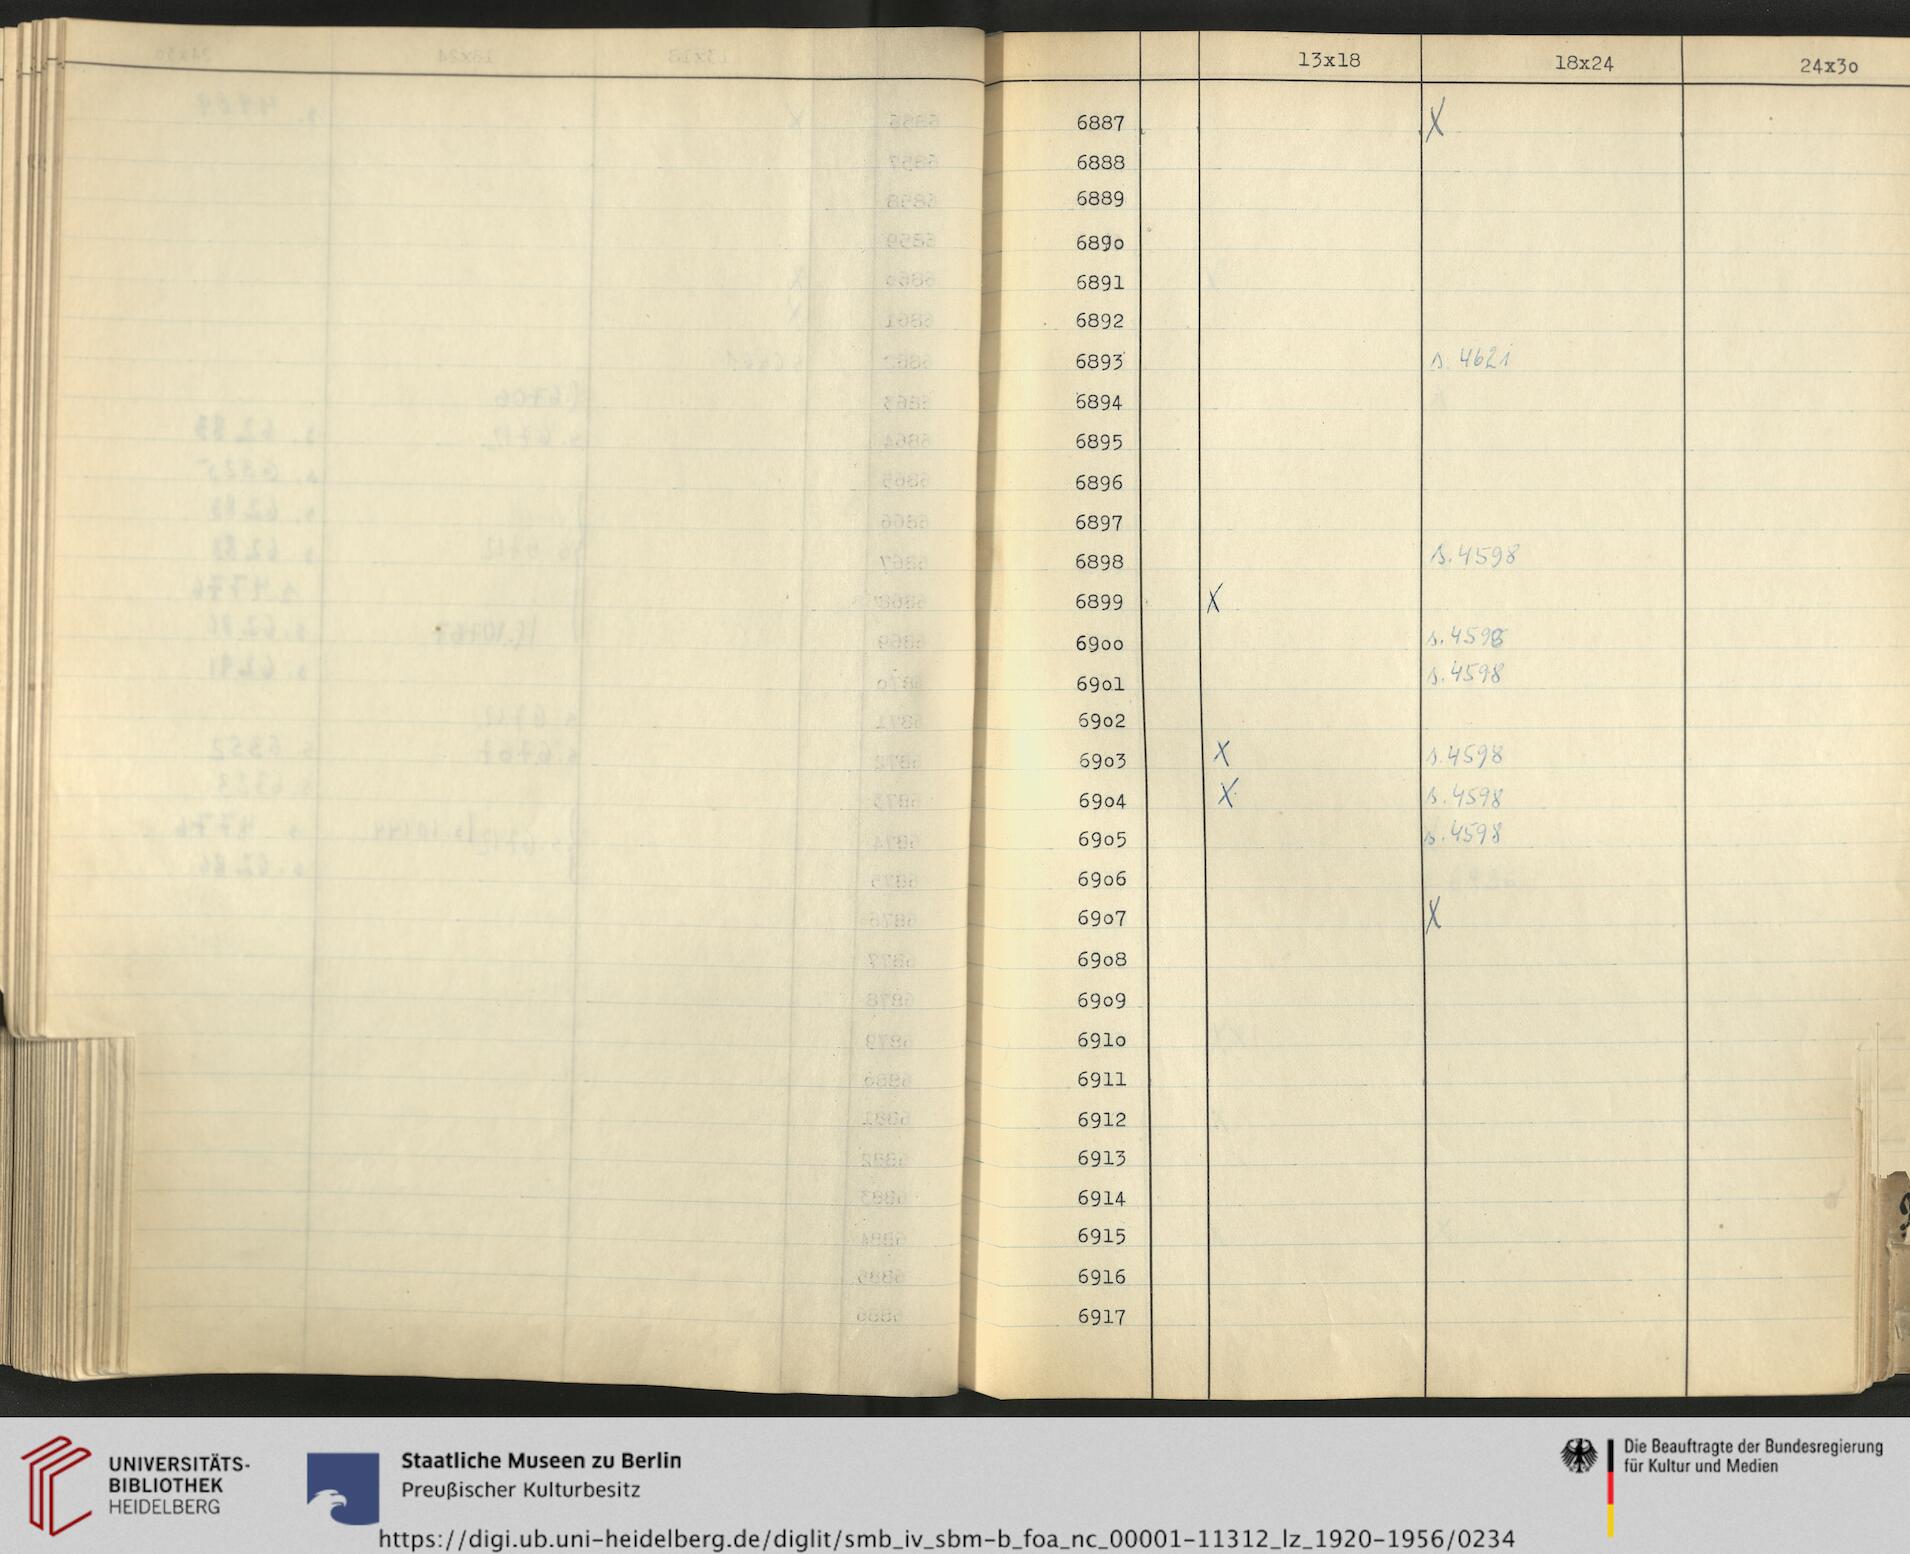 13x18 18x24 24x3o
6887 X
6888
6889
689o
6891
6892
6893 s. 4621
6894
6895
6896
6897
6898 s. 4598
6899 X
69oo s. 4598
69o1 s. 4598
69o2
69o3 X s. 4598
69o4 X s. 4598
69o5 s. 4598
69o6
69o7 X
69o8
69o9
691o
6911
6912
6913
6914
6915
6916
6917
UNIVERSITÄTS-
BIBLIOTHEK
HEIDELBERG
Staatliche Museen zu Berlin
Preußischer Kulturbesitz
Die Beauftragte der Bundesregierung
für Kultur und Medien
https://digi.ub.uni-heidelberg.de/diglit/smb_iv_sbm-b_foa_nc_00001-11312_lz_1920-1956/0234